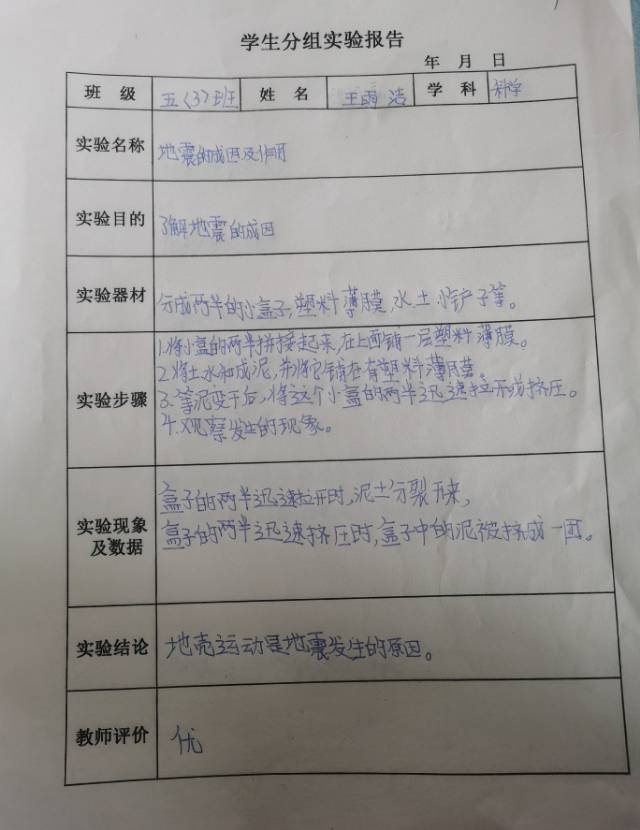 学生分组实验报告
年 月 日
班 级 五(3)班 姓 名 王雨洁 学 科 科学
实验名称 地震的成因及作用
实验目的 了解地震的成因
实验器材 分成两半的小盒子,塑料薄膜,水.土.小铲子等。
1.将小盒的两半拼接起来,在上面铺一层塑料薄膜。
2.将土水和成泥,并将它铺在有塑料薄膜。
实验步骤 3.等泥变干后,将这个小盒的两半迅速拉开或挤压。
4.观察发生的现象。
盒子的两半迅速拉开时,泥土分裂开来,
实验现象 盒子的两半迅速挤压时,盒子中的泥被挤成一团。
及数据
实验结论 地壳运动是地震发生的原因。
教师评价 优